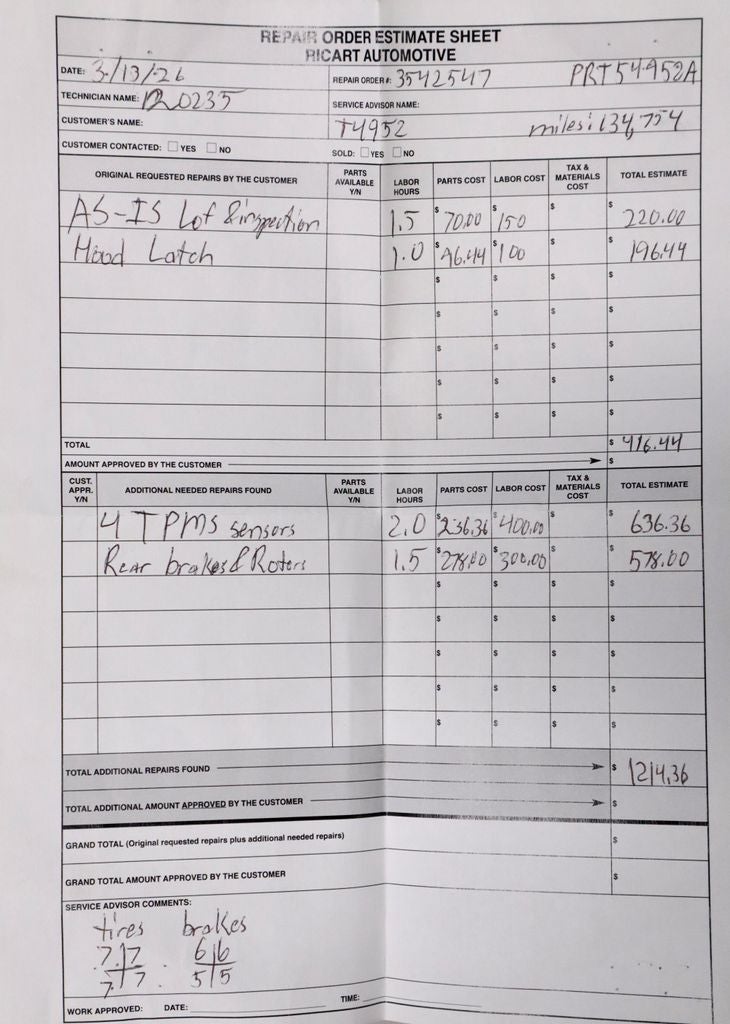 REPAIR ORDER ESTIMATE SHEET
RICART AUTOMOTIVE
DATE: 3/13/26
REPAIR ORDER #: 3542547 PRT54952A
TECHNICIAN NAME: 120235
SERVICE ADVISOR NAME:
CUSTOMER'S NAME:
T4952 miles: 134,754
CUSTOMER CONTACTED: YES NO
SOLD: YES NO
ORIGINAL REQUESTED REPAIRS BY THE CUSTOMER PARTS AVAILABLE Y/N LABOR HOURS PARTS COST LABOR COST TAX & MATERIALS COST TOTAL ESTIMATE
AS-IS Lof & inspection 1.5 $ 70.00 $ 150 $ $ 220.00
Hood Latch 1.0 $ 96.44 $ 100 $ $ 196.44
$ $ $ $
$ $ $ $
$ $ $ $
$ $ $ $
$ $ $ $
TOTAL $ 416.44
AMOUNT APPROVED BY THE CUSTOMER $
CUST. APPR. Y/N ADDITIONAL NEEDED REPAIRS FOUND PARTS AVAILABLE Y/N LABOR HOURS PARTS COST LABOR COST TAX & MATERIALS COST TOTAL ESTIMATE
4 TPMS sensors 2.0 $ 236.36 $ 400.00 $ $ 636.36
Rear brakes & Rotors 1.5 $ 278.00 $ 300.00 $ $ 578.00
$ $ $ $
$ $ $ $
$ $ $ $
$ $ $ $
$ $ $ $
TOTAL ADDITIONAL REPAIRS FOUND $ 1214.36
TOTAL ADDITIONAL AMOUNT APPROVED BY THE CUSTOMER $
GRAND TOTAL (Original requested repairs plus additional needed repairs) $
GRAND TOTAL AMOUNT APPROVED BY THE CUSTOMER $
SERVICE ADVISOR COMMENTS:
tires brakes
7 7 6 6
7 7 5 5
WORK APPROVED: DATE: TIME: